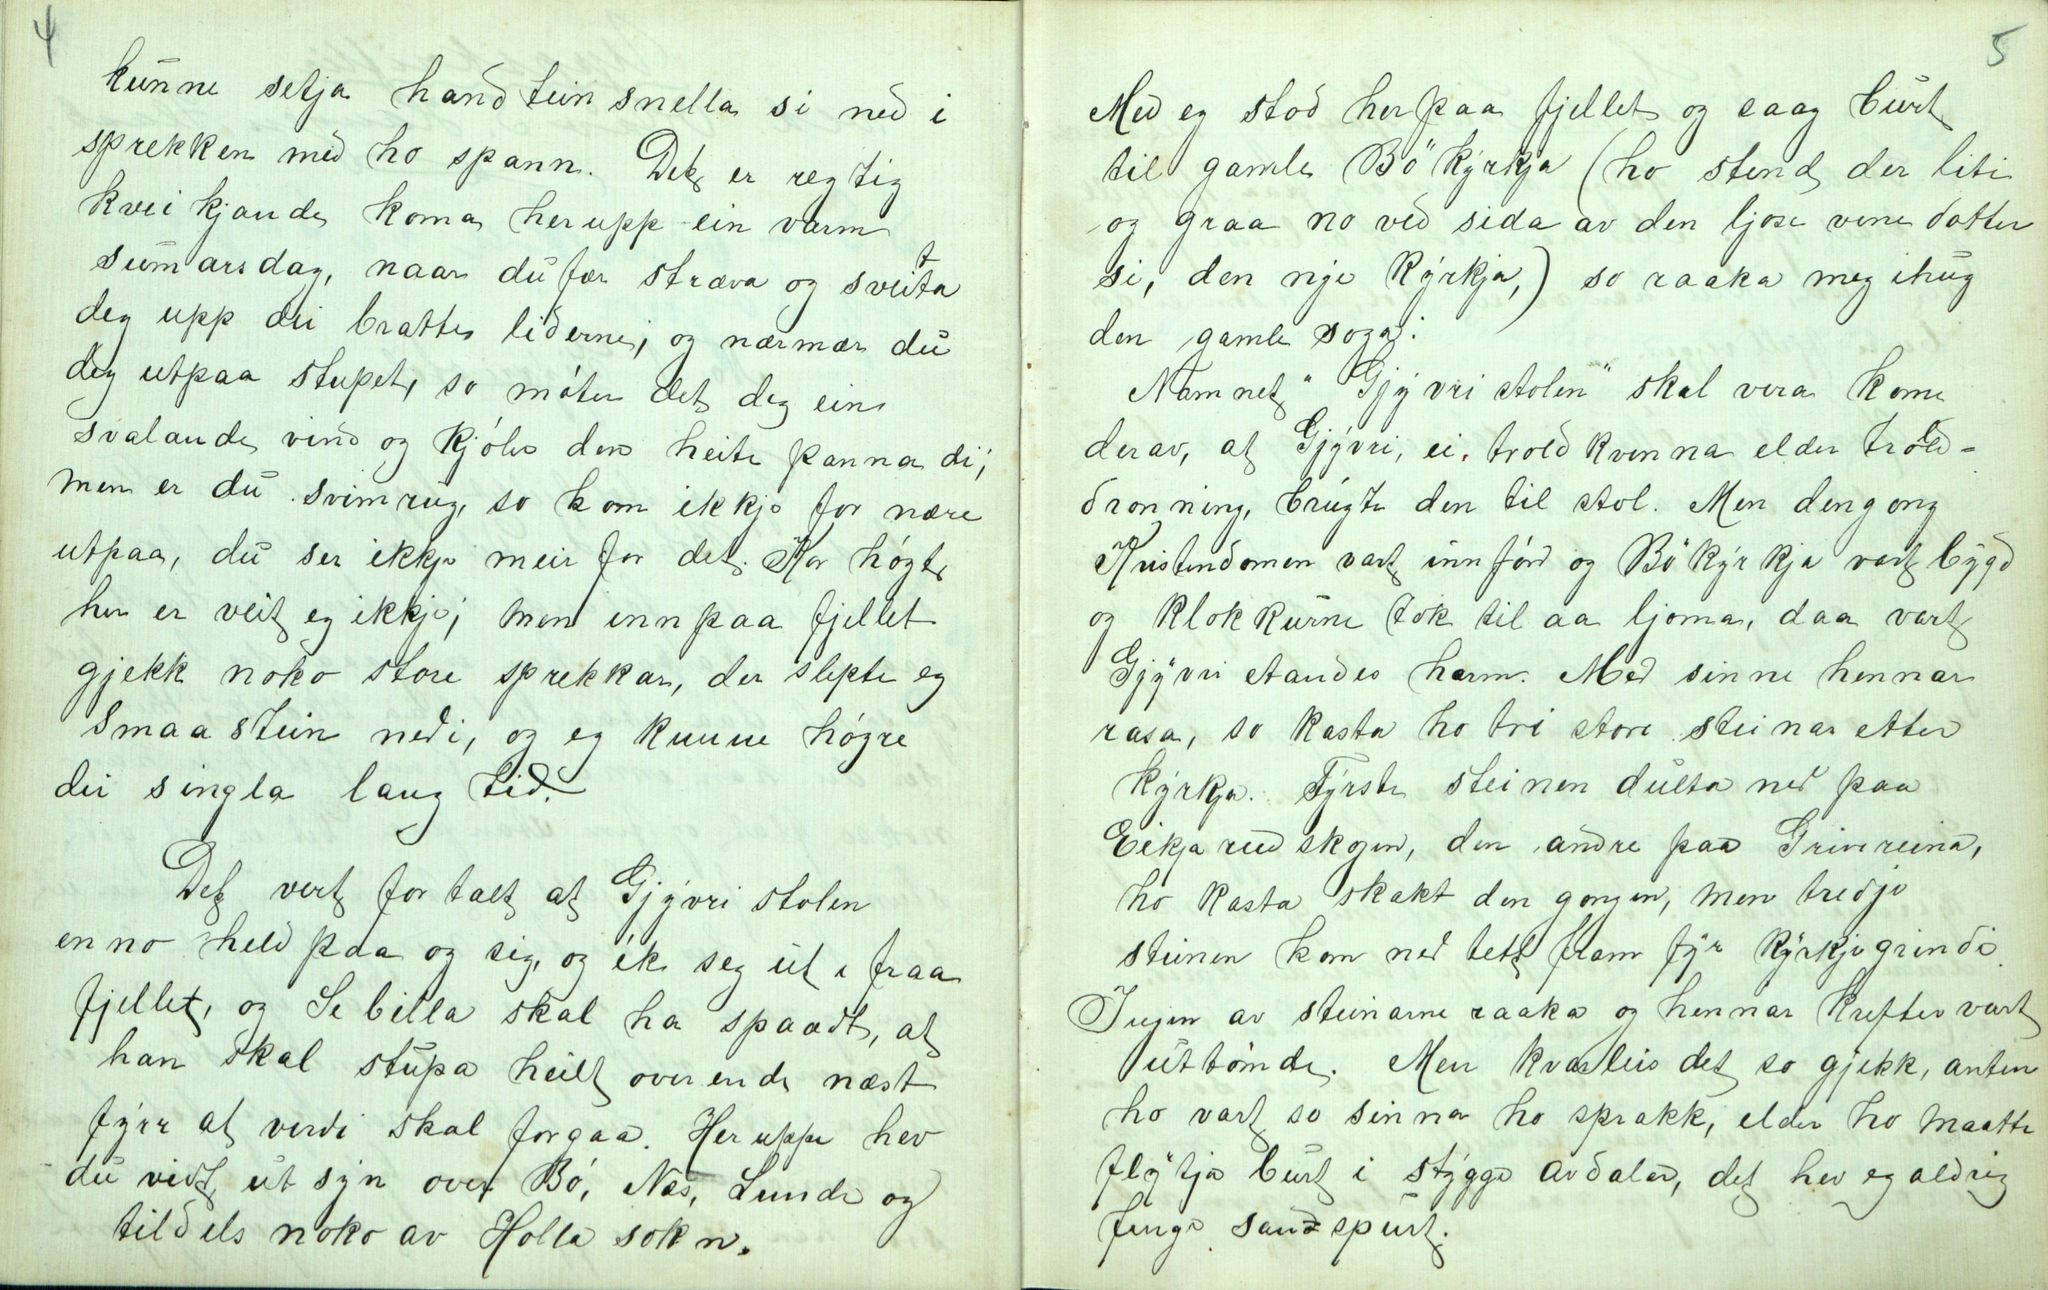 4
kunne setja handteinsnella si ned i
sprekken med ho spann. Det er regtig
kveikjande koma herupp ein varm
sumarsdag, naar du fær stræva og sveitta
deg upp dei bratte liderne, og nærmær du
deg utpaa stupet, so móter det deg ein
svalande vind og kjóler den heite panna di;
men er du svimrug, so kom ikkje for nære
utpaa, du ser ikkje meir for det. Kor högt
her er veit eg ikkje; men innpaa fjellet
gjekk noko store sprekkar, der slepte eg
smaastein nedi, og eg kunne högre
dei singla lang tid.
Det vert fortalt at Gjývri stolen
enno held paa og sig, og ék seg ut ifraa
fjellet, og Sebilla skal ha spaadt, at
han skal stupa heilt overende næst
fýrr at verdi skal forgaa. Heruppe hev
du vidt utsýn over Bó, Nes, Lunde og
tildels noko av Holla sokn.
5
Med eg stod her paa fjellet og saag burt
til gamle Bö kýrkja (ho stend der liti
og graa no ved sida av den ljose vene dotter
si, den nye kýrkja,) so raaka meg ihug
den gamle soga:
Namnet "Gjývri stolen" skal vera kome
derav, at Gjývri, ei trold kvenna elder trold-
dronning, brúgte den til stol. Men dengong
Kristendomen vart innförd og Bö kýrkja vart býgd
og klokkurne tok til aa ljoma, daa vart
Gjývri standes harm. Med sinne hennar
rasa, so kasta ho tri store steinar etter
kýrkja. Fýrste steinen dulta ned paa
Eikjarudskogen, den andre paa Grivireina,
ho kasta skakt den gongen, men tredje
steinen kom ned tett fram fýr kýrkjegrindi.
Ingen av steinarne raaka og hennar krefter vart
uttömde. Men kvarleis det so gjekk, anten
ho vart so sinna ho sprakk, elder ho maatte
flýtja burt i stýgge avdalar, det hev eg aldrig
fenge sandspurt.